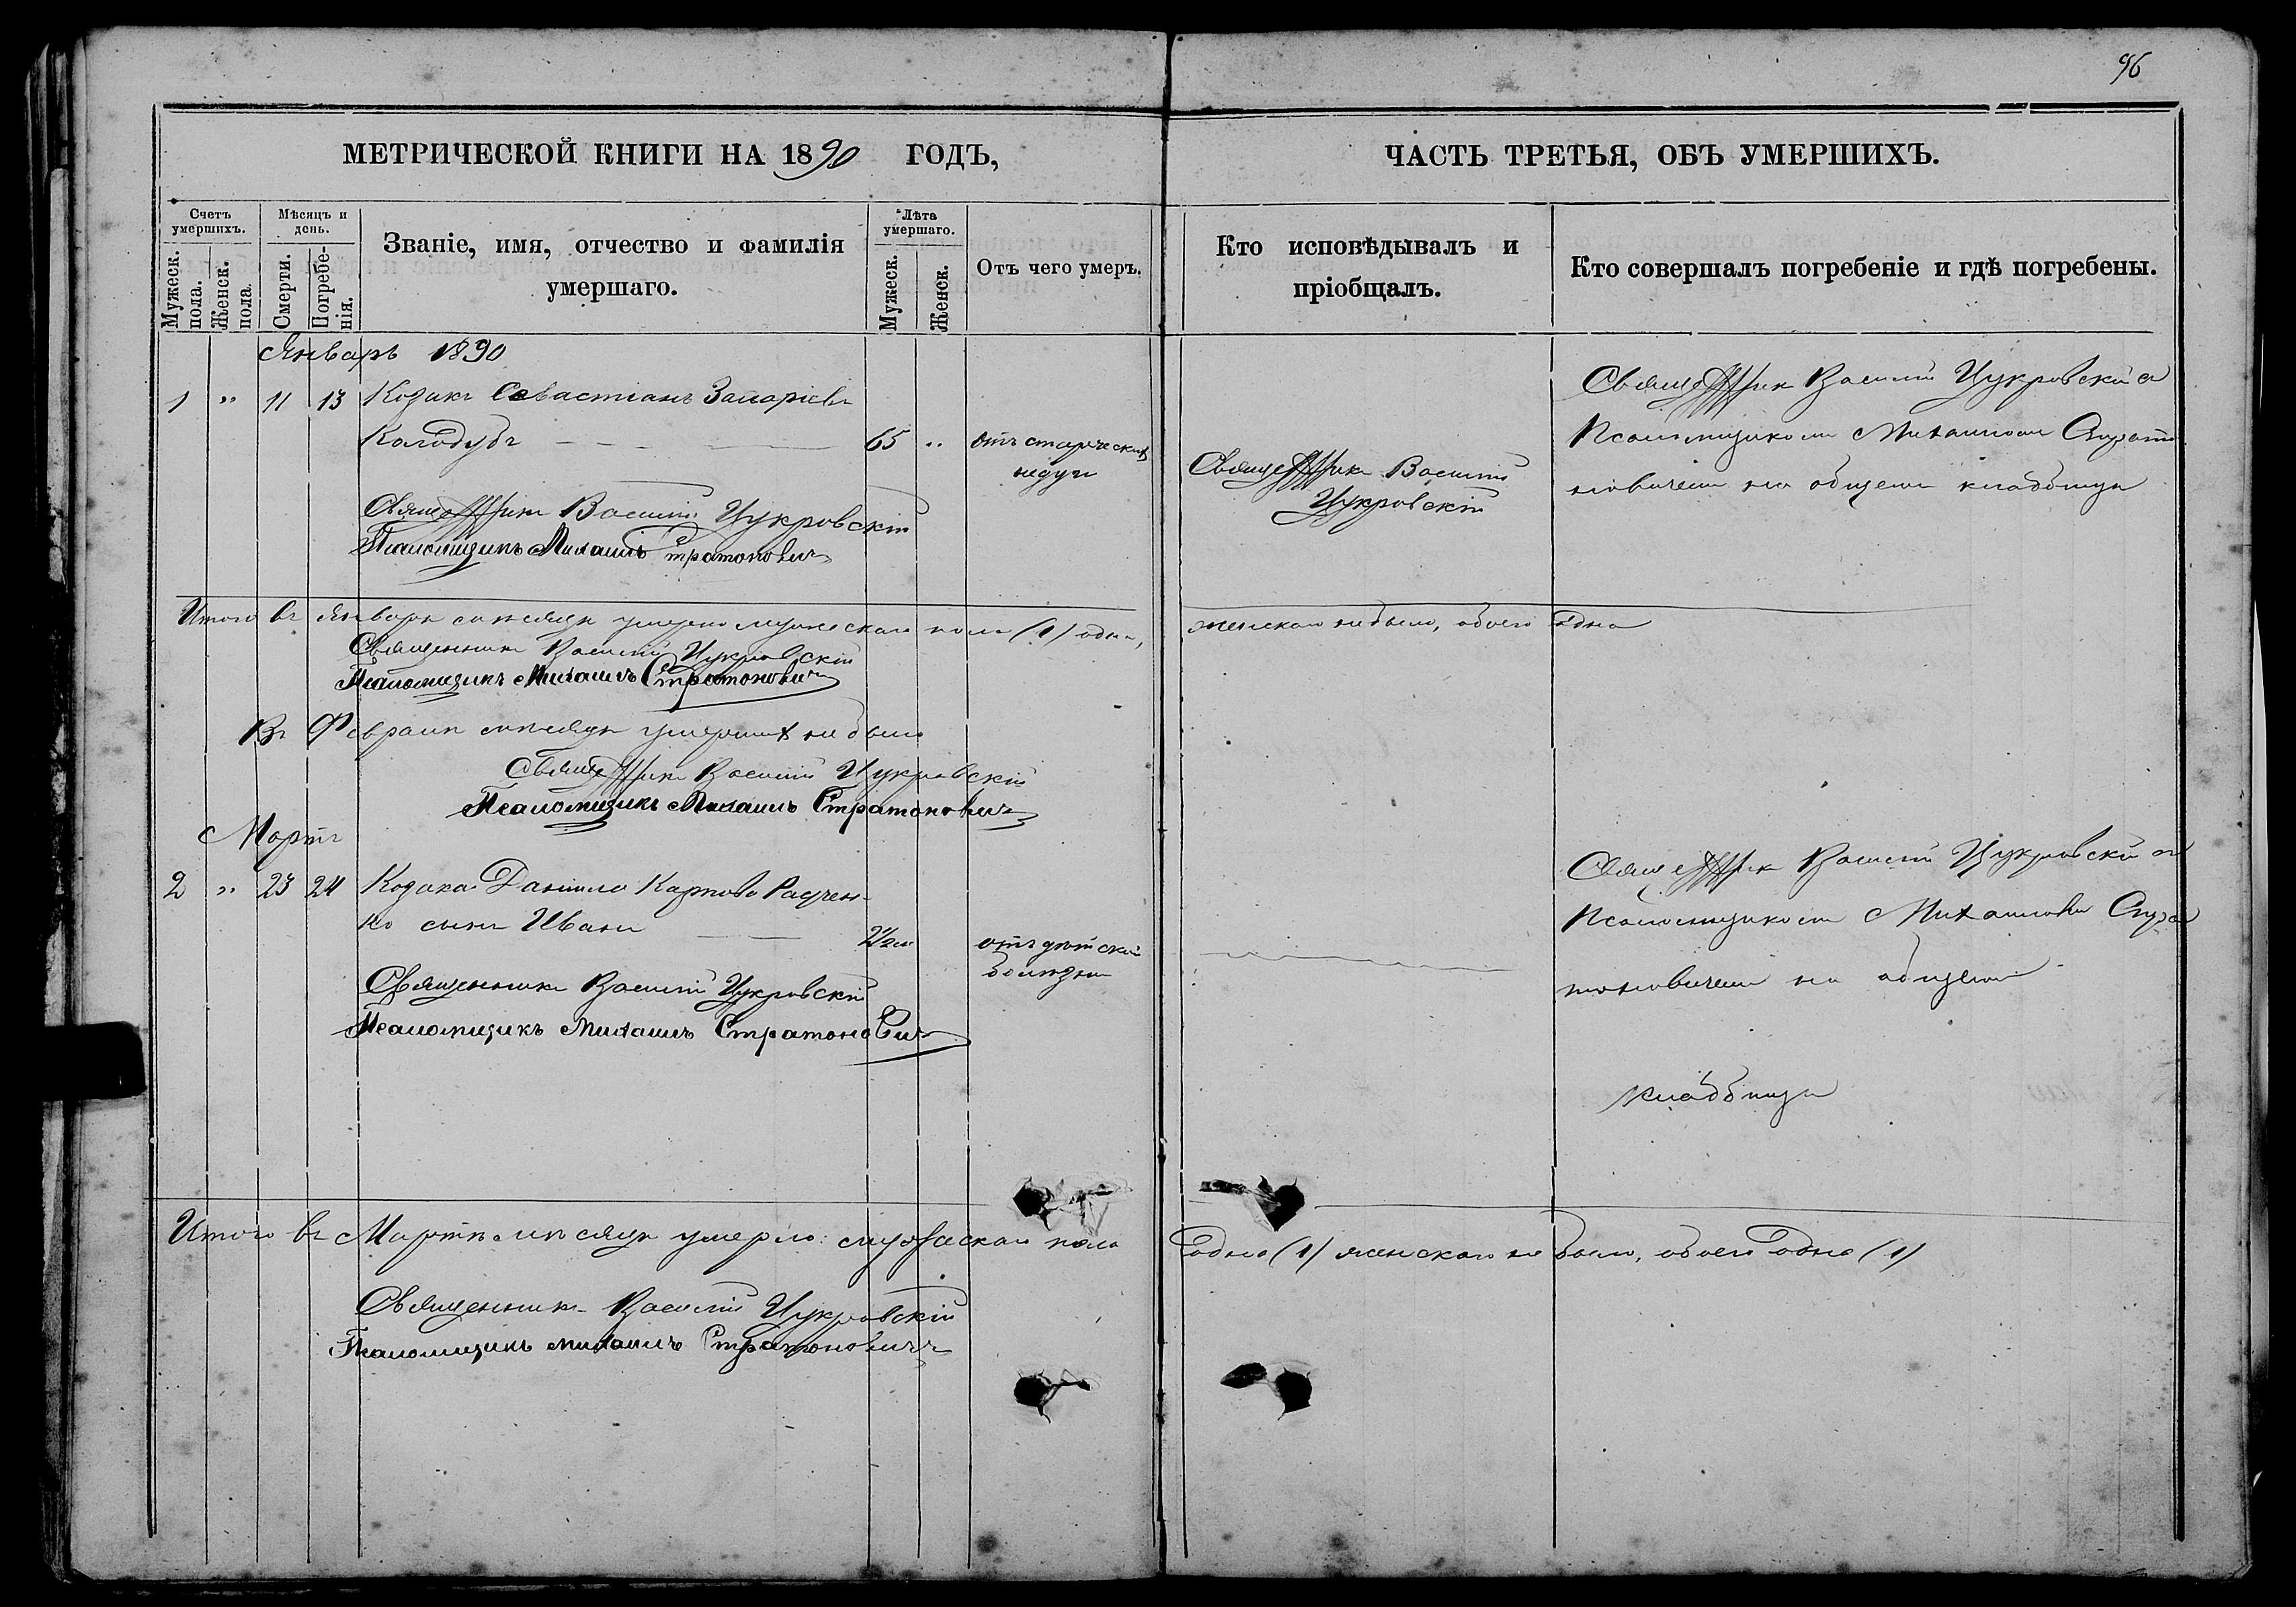 96
МЕТРИЧЕСКОЙ КНИГИ НА 1890 ГОДЪ,
ЧАСТЬ ТРЕТЬЯ, ОБЪ УМЕРШИХЪ.
Счетъ умершихъ.
Мужеск. пола.
Женск. пола.
Мѣсяцъ и день.
Смерти.
Погребенія.
Званіе, имя, отчество и фамилія
умершаго.
Лѣта умершаго.
Мужеск.
Женск.
Отъ чего умеръ.
Кто исповѣдывалъ и
пріобщалъ.
Кто совершалъ погребеніе и гдѣ погребены.
Январь 1890
1 " 11 13 Козакъ Севастіанъ Захаріевъ
Колодубъ 65 " отъ старческихъ
недуги
Священникъ Василій Цукровскій
Псаломщикъ Михаилъ Стратоновичъ
Священникъ Василій
Цукровскій
Священник Василій Цукровскій съ
Псаломщикомъ Михаиломъ Страто
новичемъ на общемъ кладбищѣ
Итого въ Январѣ мѣсяцѣ умерло мужеская пола (1) одна, женская небыло, обоего одна
Священникъ Василій Цукровскій
Псаломщикъ Михаилъ Стратоновичъ
Въ Февралѣ мѣсяцѣ умершихъ небыло
Священникъ Василій Цукровскій
Псаломщикъ Михаилъ Стратоновичъ
Мартъ
2 " 23 24 Козака Даніила Карпова Радчен-
ко сынъ Иванъ отъ дѣтской
болѣзни
Священникъ Василій Цукровскій
Псаломщикъ Михаилъ Стратоновичъ
Священник Василій Цукровскій съ
Псаломщикомъ Михаиломъ Стра
тоновичемъ на общемъ
кладбищѣ
Итого въ Мартѣ мѣсяцѣ умерло: мужеская пола одна (1) женская не было, обоего одна (1)
Священникъ Василій Цукровскій
Псаломщикъ Михаилъ Стратоновичъ